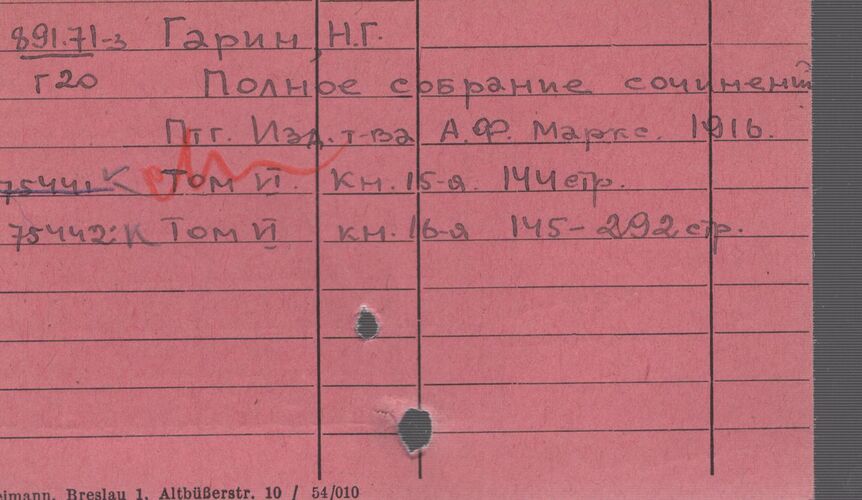 891.71-3 Гарин, Н.Г.
Г20 Полное собрание сочинений
Птг. Изд. т-ва А.Ф. Маркс. 1916.
75441: К Том VI. кн. 15-я. 144 стр.
75442: К Том VI кн. 16-я 145-292 стр.
eimann, Breslau 1, Altbüßerstr. 10 / 54/010